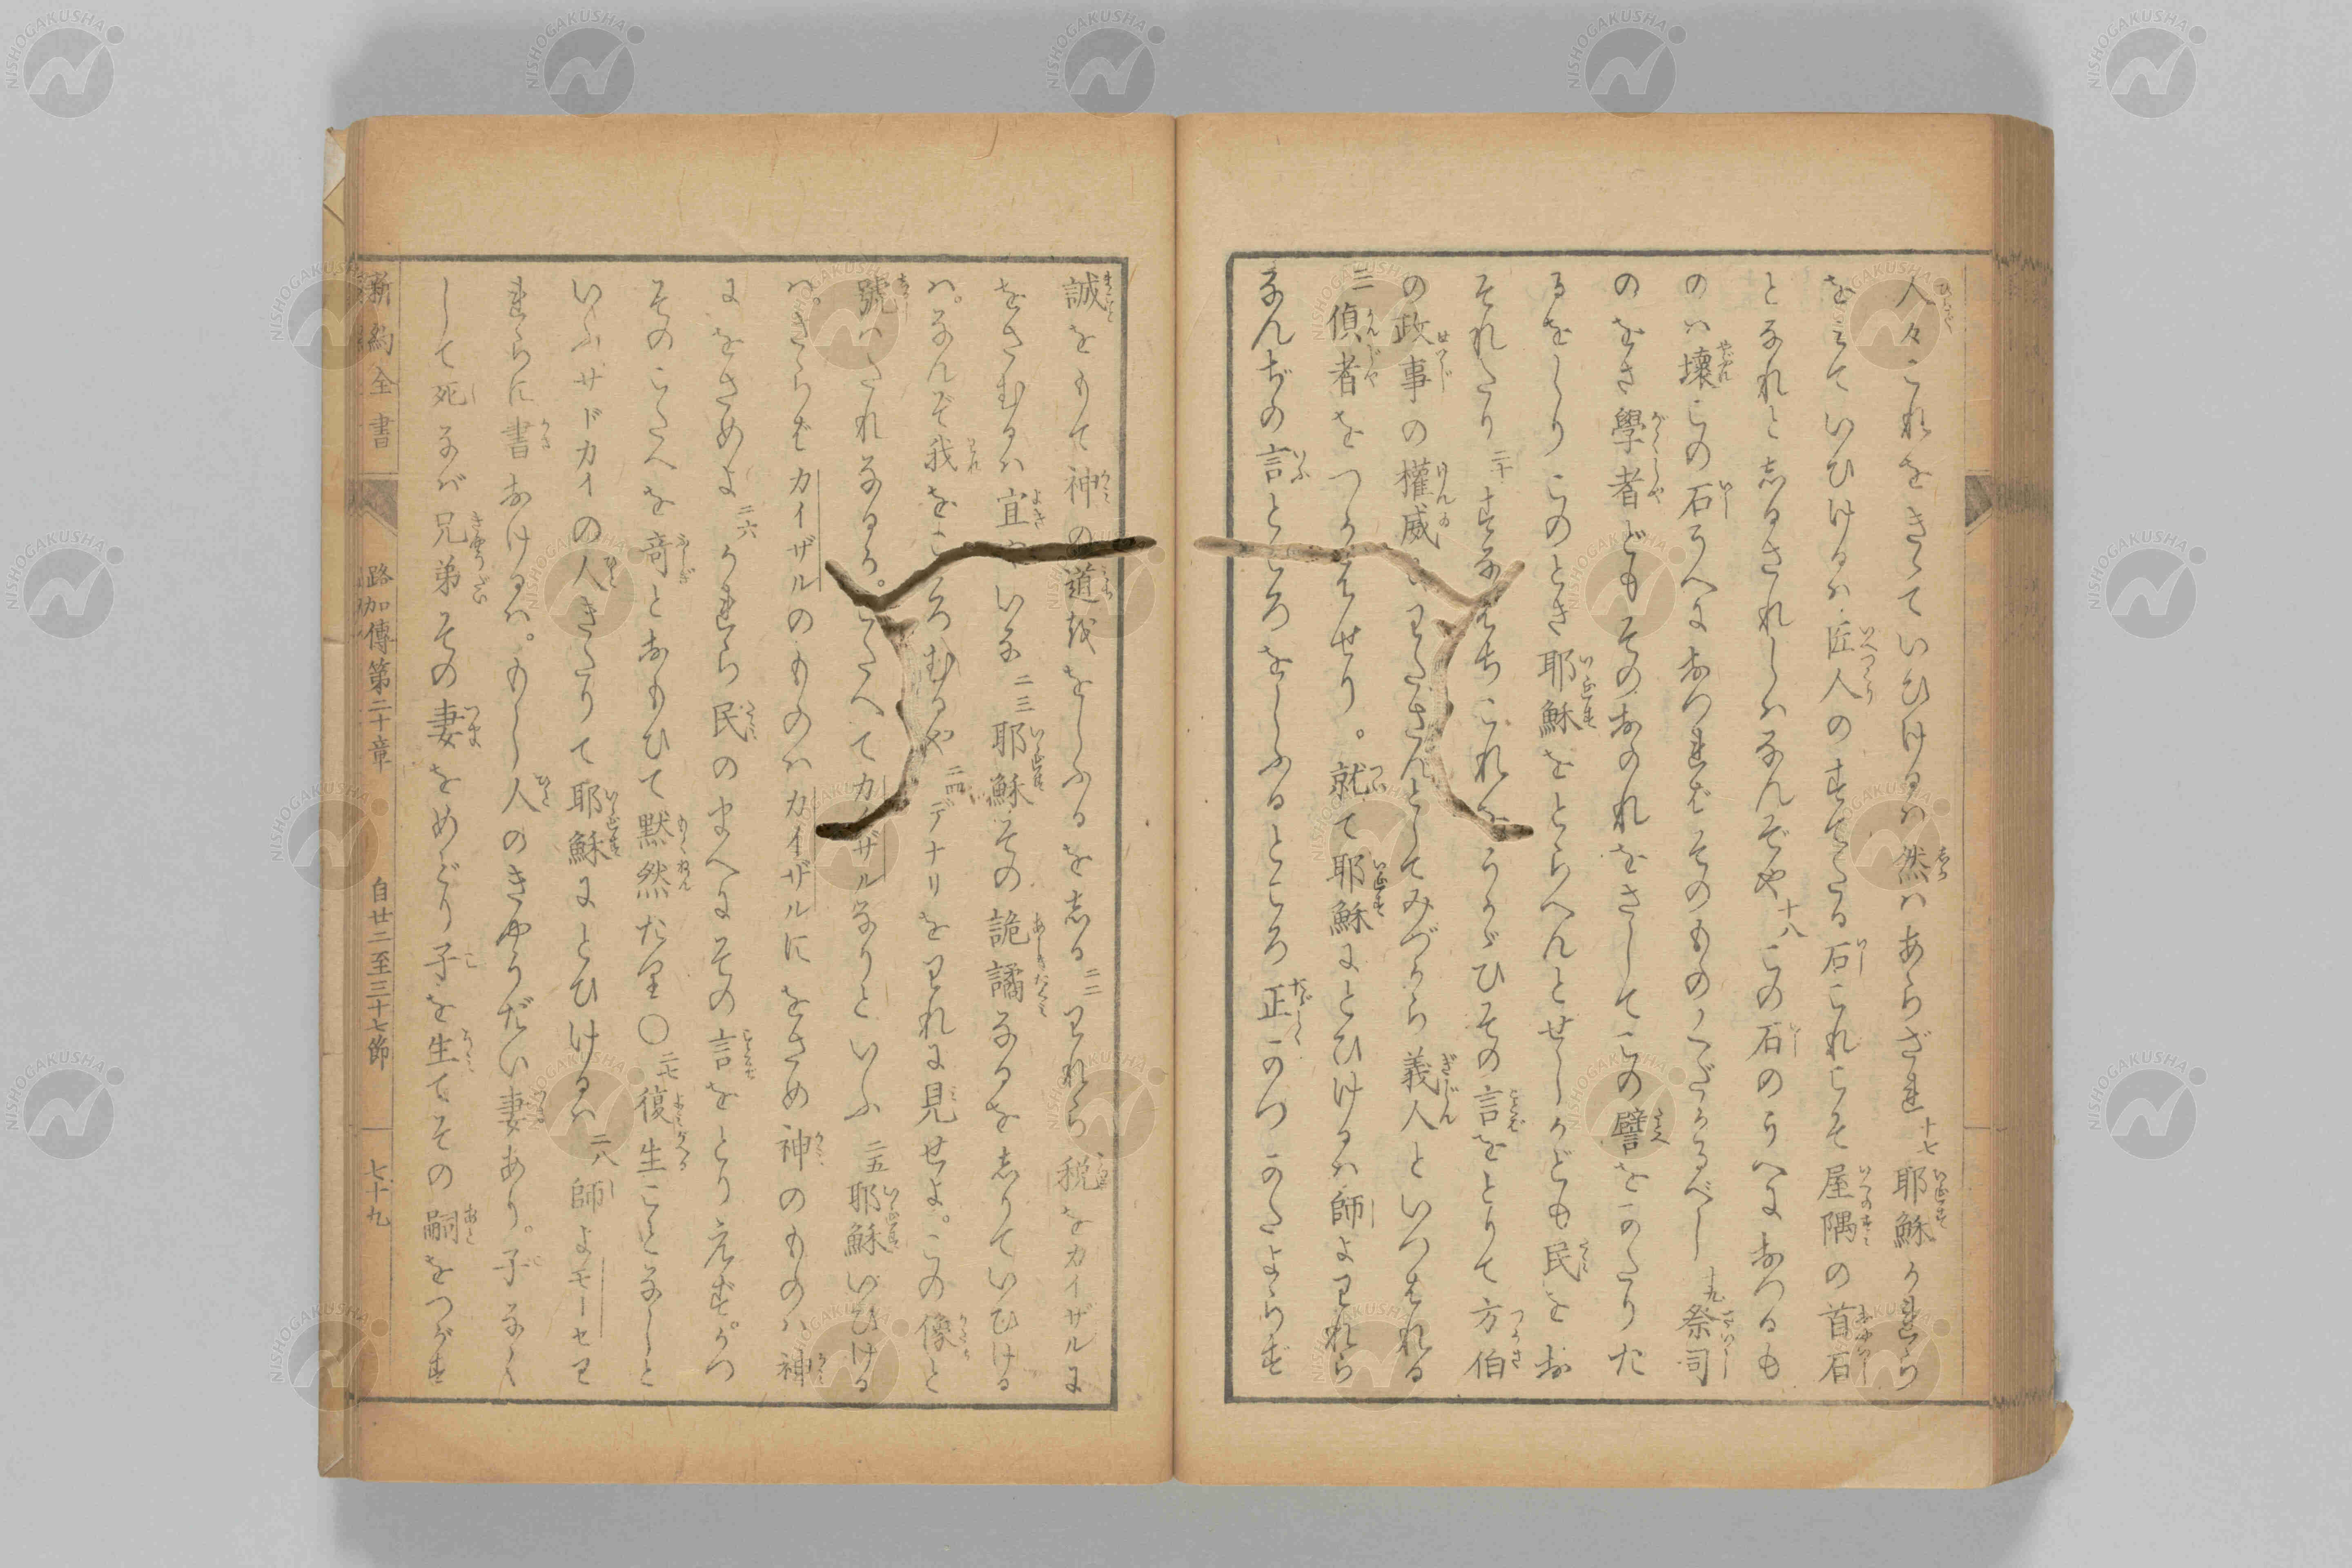 人々これをきゝていひけるハ然ハあらざれ十七耶穌かれら
をみていひけるハ匠人のすてたる石これこそ屋隅の首石
となれとしるされしハなんぞや十八この石のうへにおつるも
のハ壊この石うへにおつればそのものくだかるべし十九祭司
のをさ學者どもそのおのれをさしてこの譬をかたりた
るをしりこのときイ耶穌をとらへんとせしかども民をお
それたり二十すなはちこれをうかゞひその言をとりて方伯
の政事の權威にわたさんとしてみづから義人といつはれる
二一偵者をつかはせり。就て耶穌にとひけるハ師よわれら
なんぢの言ところをしふるところ正かつかたよらず
誠をもて神の道をしふるをしる二二われら税をカイザルに
をさむるハ宜やいな二三耶穌その詭譎なるをしりていひける
ハ。なんぞ我をこゝろむるや二四デナリをわれに見せよ。この像と
號ハたれなるか。こたへてカイザルなりといふ二五耶穌いひける
ハ。さらばカイザルのものハカイザルにをさめ神のものハ神
にをさめよ二六かれら民のまへにその言をとり得ずかつ
そのこたへを奇とおもひて黙然たり〇二七復生ことなしと
いふサドカイの人きたりて耶穌にとひけるハ二八師よモーセわ
れらに書おけるハ。もし人のきやうだい妻あり。子なく
して死なバ兄弟その妻をめどり子を生てその嗣をつがす
新約全書
路加傳第二十章
自廿二至三十七節
七十九